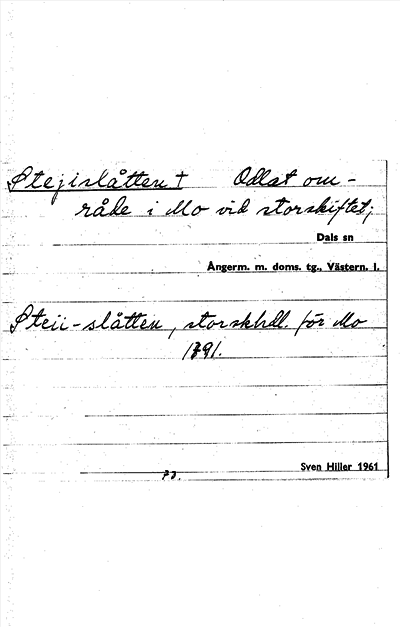 Stejislåtten † Odlat om-
råde i Mo vid storskiftet;
Dals sn
Ångerm. m. doms. tg., Västern. l.
Steii-slåtten, storskhdl. för Mo
1791.
Sven Hiller 1961